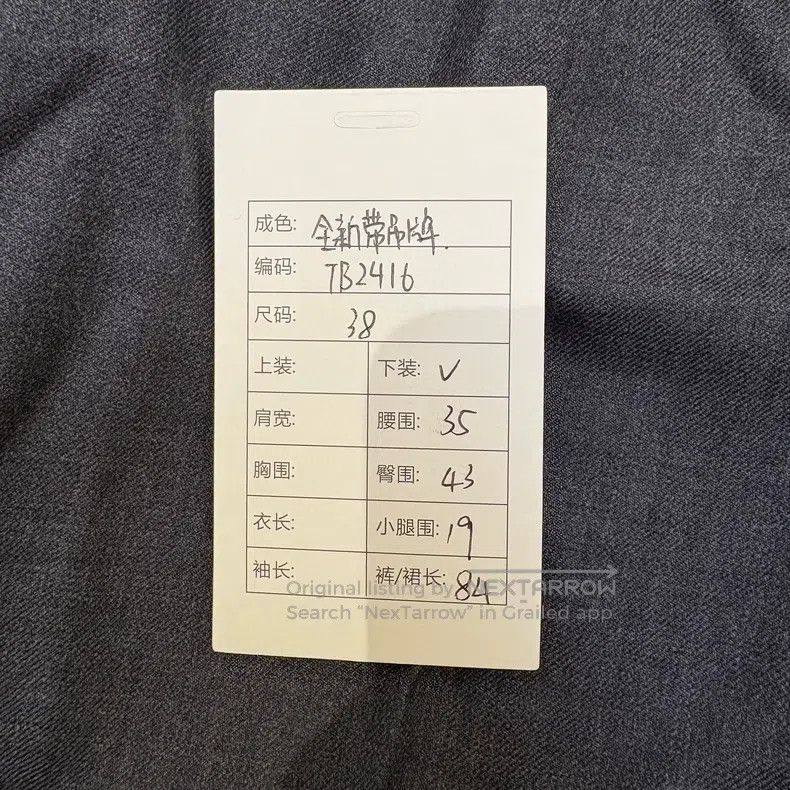 成色: 全新带吊牌.
编码: TB2416
尺码: 38
上装: 下装: ✓
肩宽: 腰围: 35
胸围: 臀围: 43
衣长: 小腿围: 19
袖长: 裤/裙长: 84
Original listing by NEXTARROW
Search "NexTarrow" in Grailed app